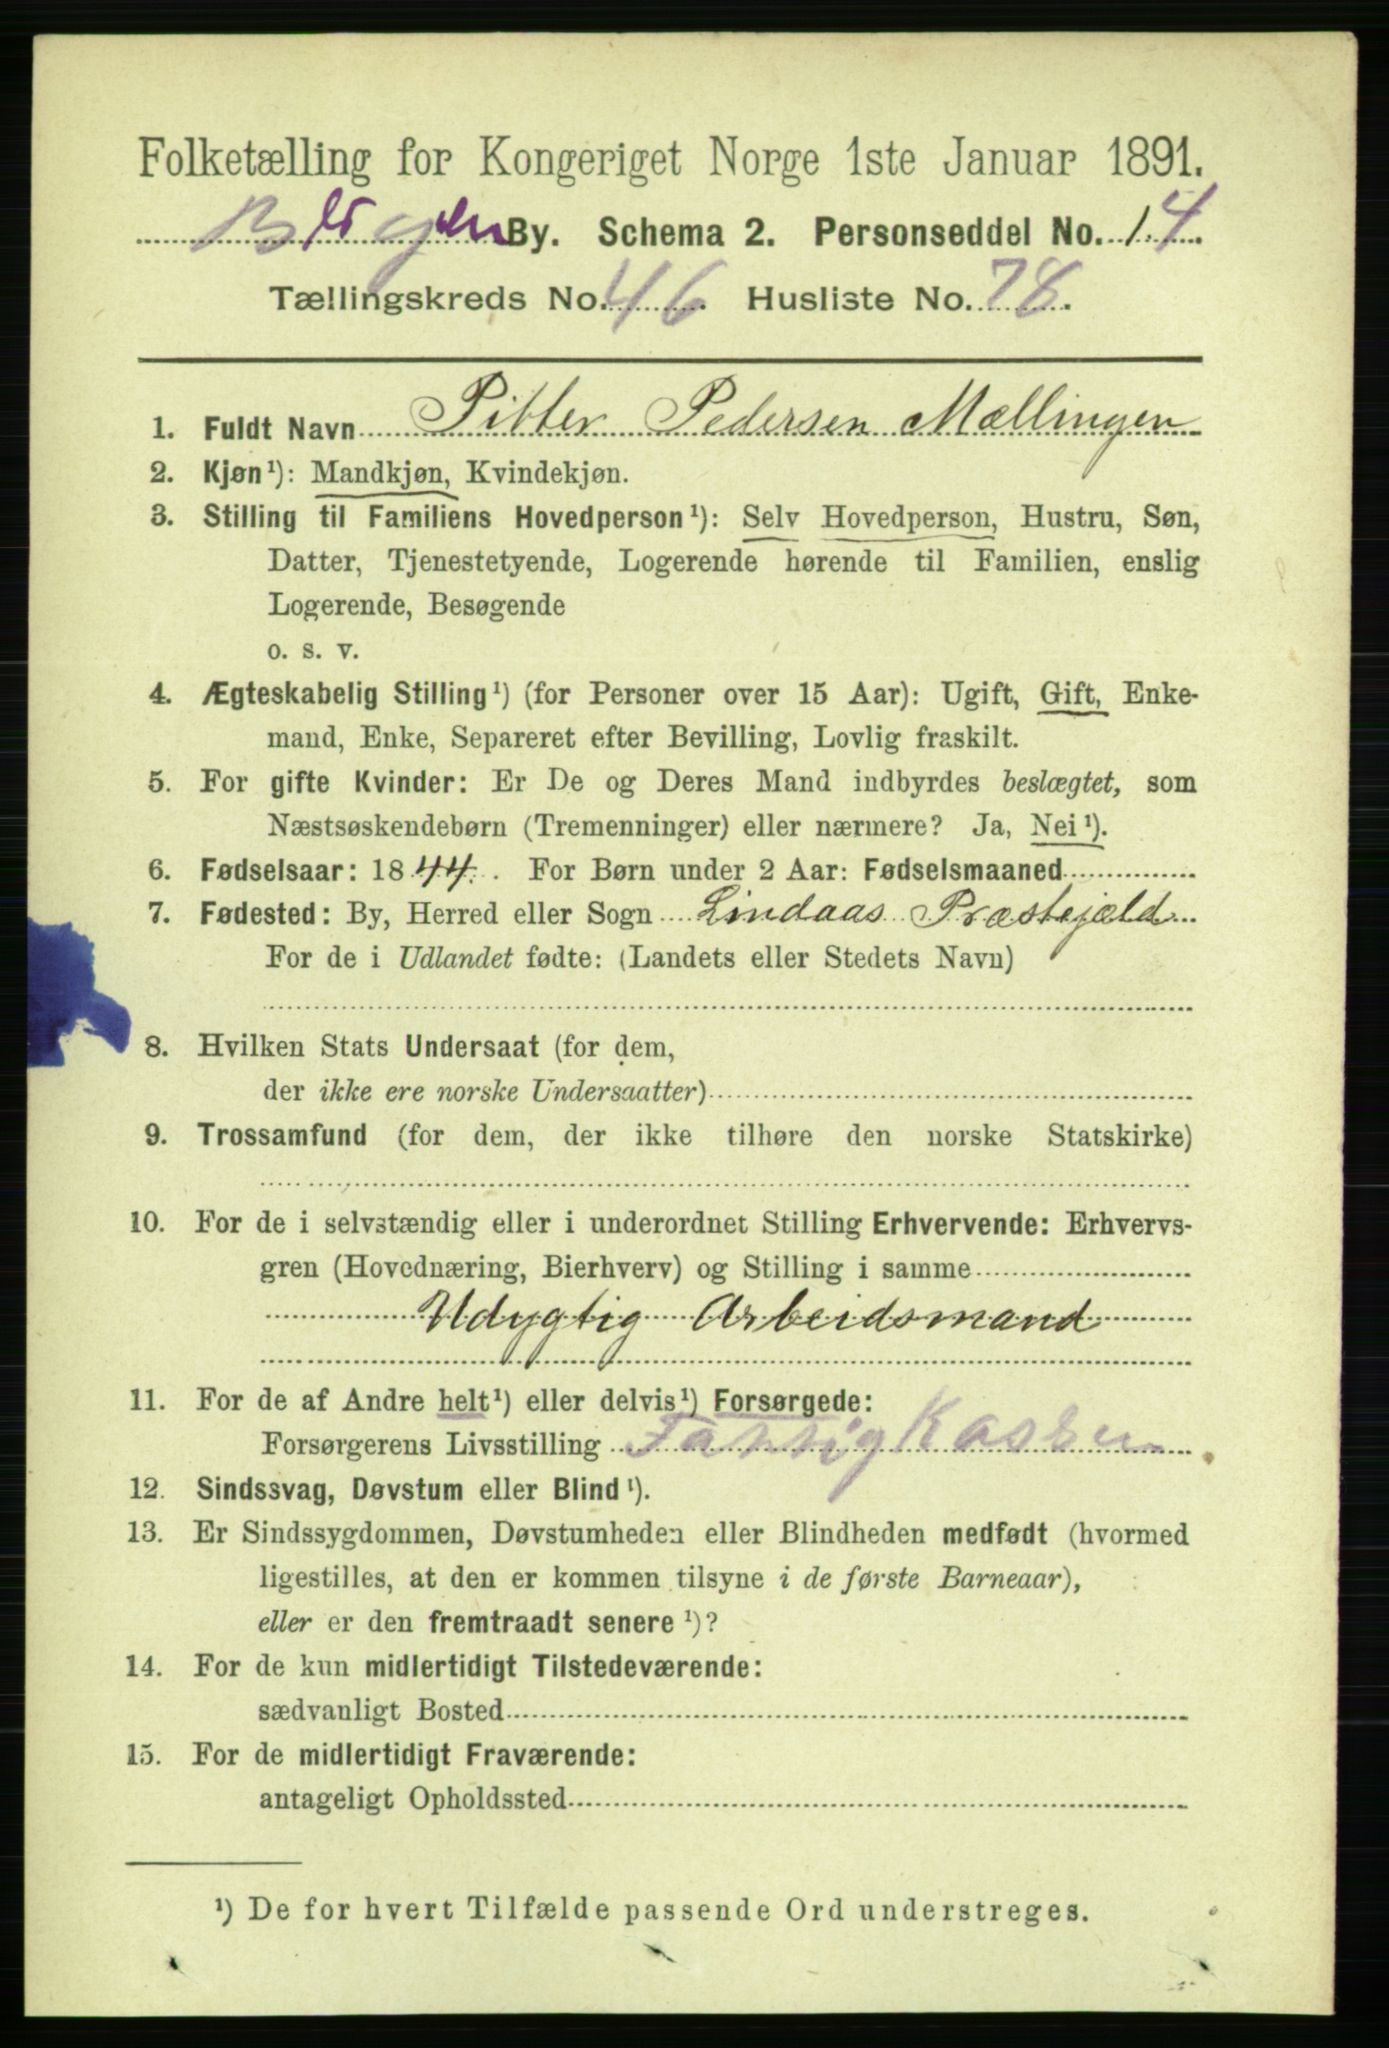 Folketælling for Kongeriget Norge 1ste Januar 1891.
Bergen By. Schema 2. Personseddel No. 14
Tællingskreds No. 46 Husliste No. 78.
1. Fuldt Navn Pitter Pedersen Mællingen
2. Kjøn¹): Mandkjøn, Kvindekjøn.
3. Stilling til Familiens Hovedperson¹): Selv Hovedperson, Hustru, Søn,
Datter, Tjenestetyende, Logerende hørende til Familien, enslig
Logerende, Besøgende
o. s. v.
4. Ægteskabelig Stilling¹) (for Personer over 15 Aar): Ugift, Gift, Enke-
mand, Enke, Separeret efter Bevilling, Lovlig fraskilt.
5. For gifte Kvinder: Er De og Deres Mand indbyrdes beslægtet, som
Næstsøskendebørn (Tremenninger) eller nærmere? Ja, Nei¹).
6. Fødselsaar: 1844. For Børn under 2 Aar: Fødselsmaaned
7. Fødested: By, Herred eller Sogn Lindaas Præstejæld
For de i Udlandet fødte: (Landets eller Stedets Navn)
8. Hvilken Stats Undersaat (for dem,
der ikke ere norske Undersaatter)
9. Trossamfund (for dem, der ikke tilhøre den norske Statskirke)
10. For de i selvstændig eller i underordnet Stilling Erhvervende: Erhvervs-
gren (Hovednæring, Bierhverv) og Stilling i samme
Udygtig Arbeidsmand
11. For de af Andre helt¹) eller delvis¹) Forsørgede:
Forsørgerens Livsstilling Fattigkassen
12. Sindssvag, Døvstum eller Blind¹).
13. Er Sindssygdommen, Døvstumheden eller Blindheden medfødt (hvormed
ligestilles, at den er kommen tilsyne i de første Barneaar),
eller er den fremtraadt senere¹)?
14. For de kun midlertidigt Tilstedeværende:
sædvanligt Bosted
15. For de midlertidigt Fraværende:
antageligt Opholdssted
¹) De for hvert Tilfælde passende Ord understreges.